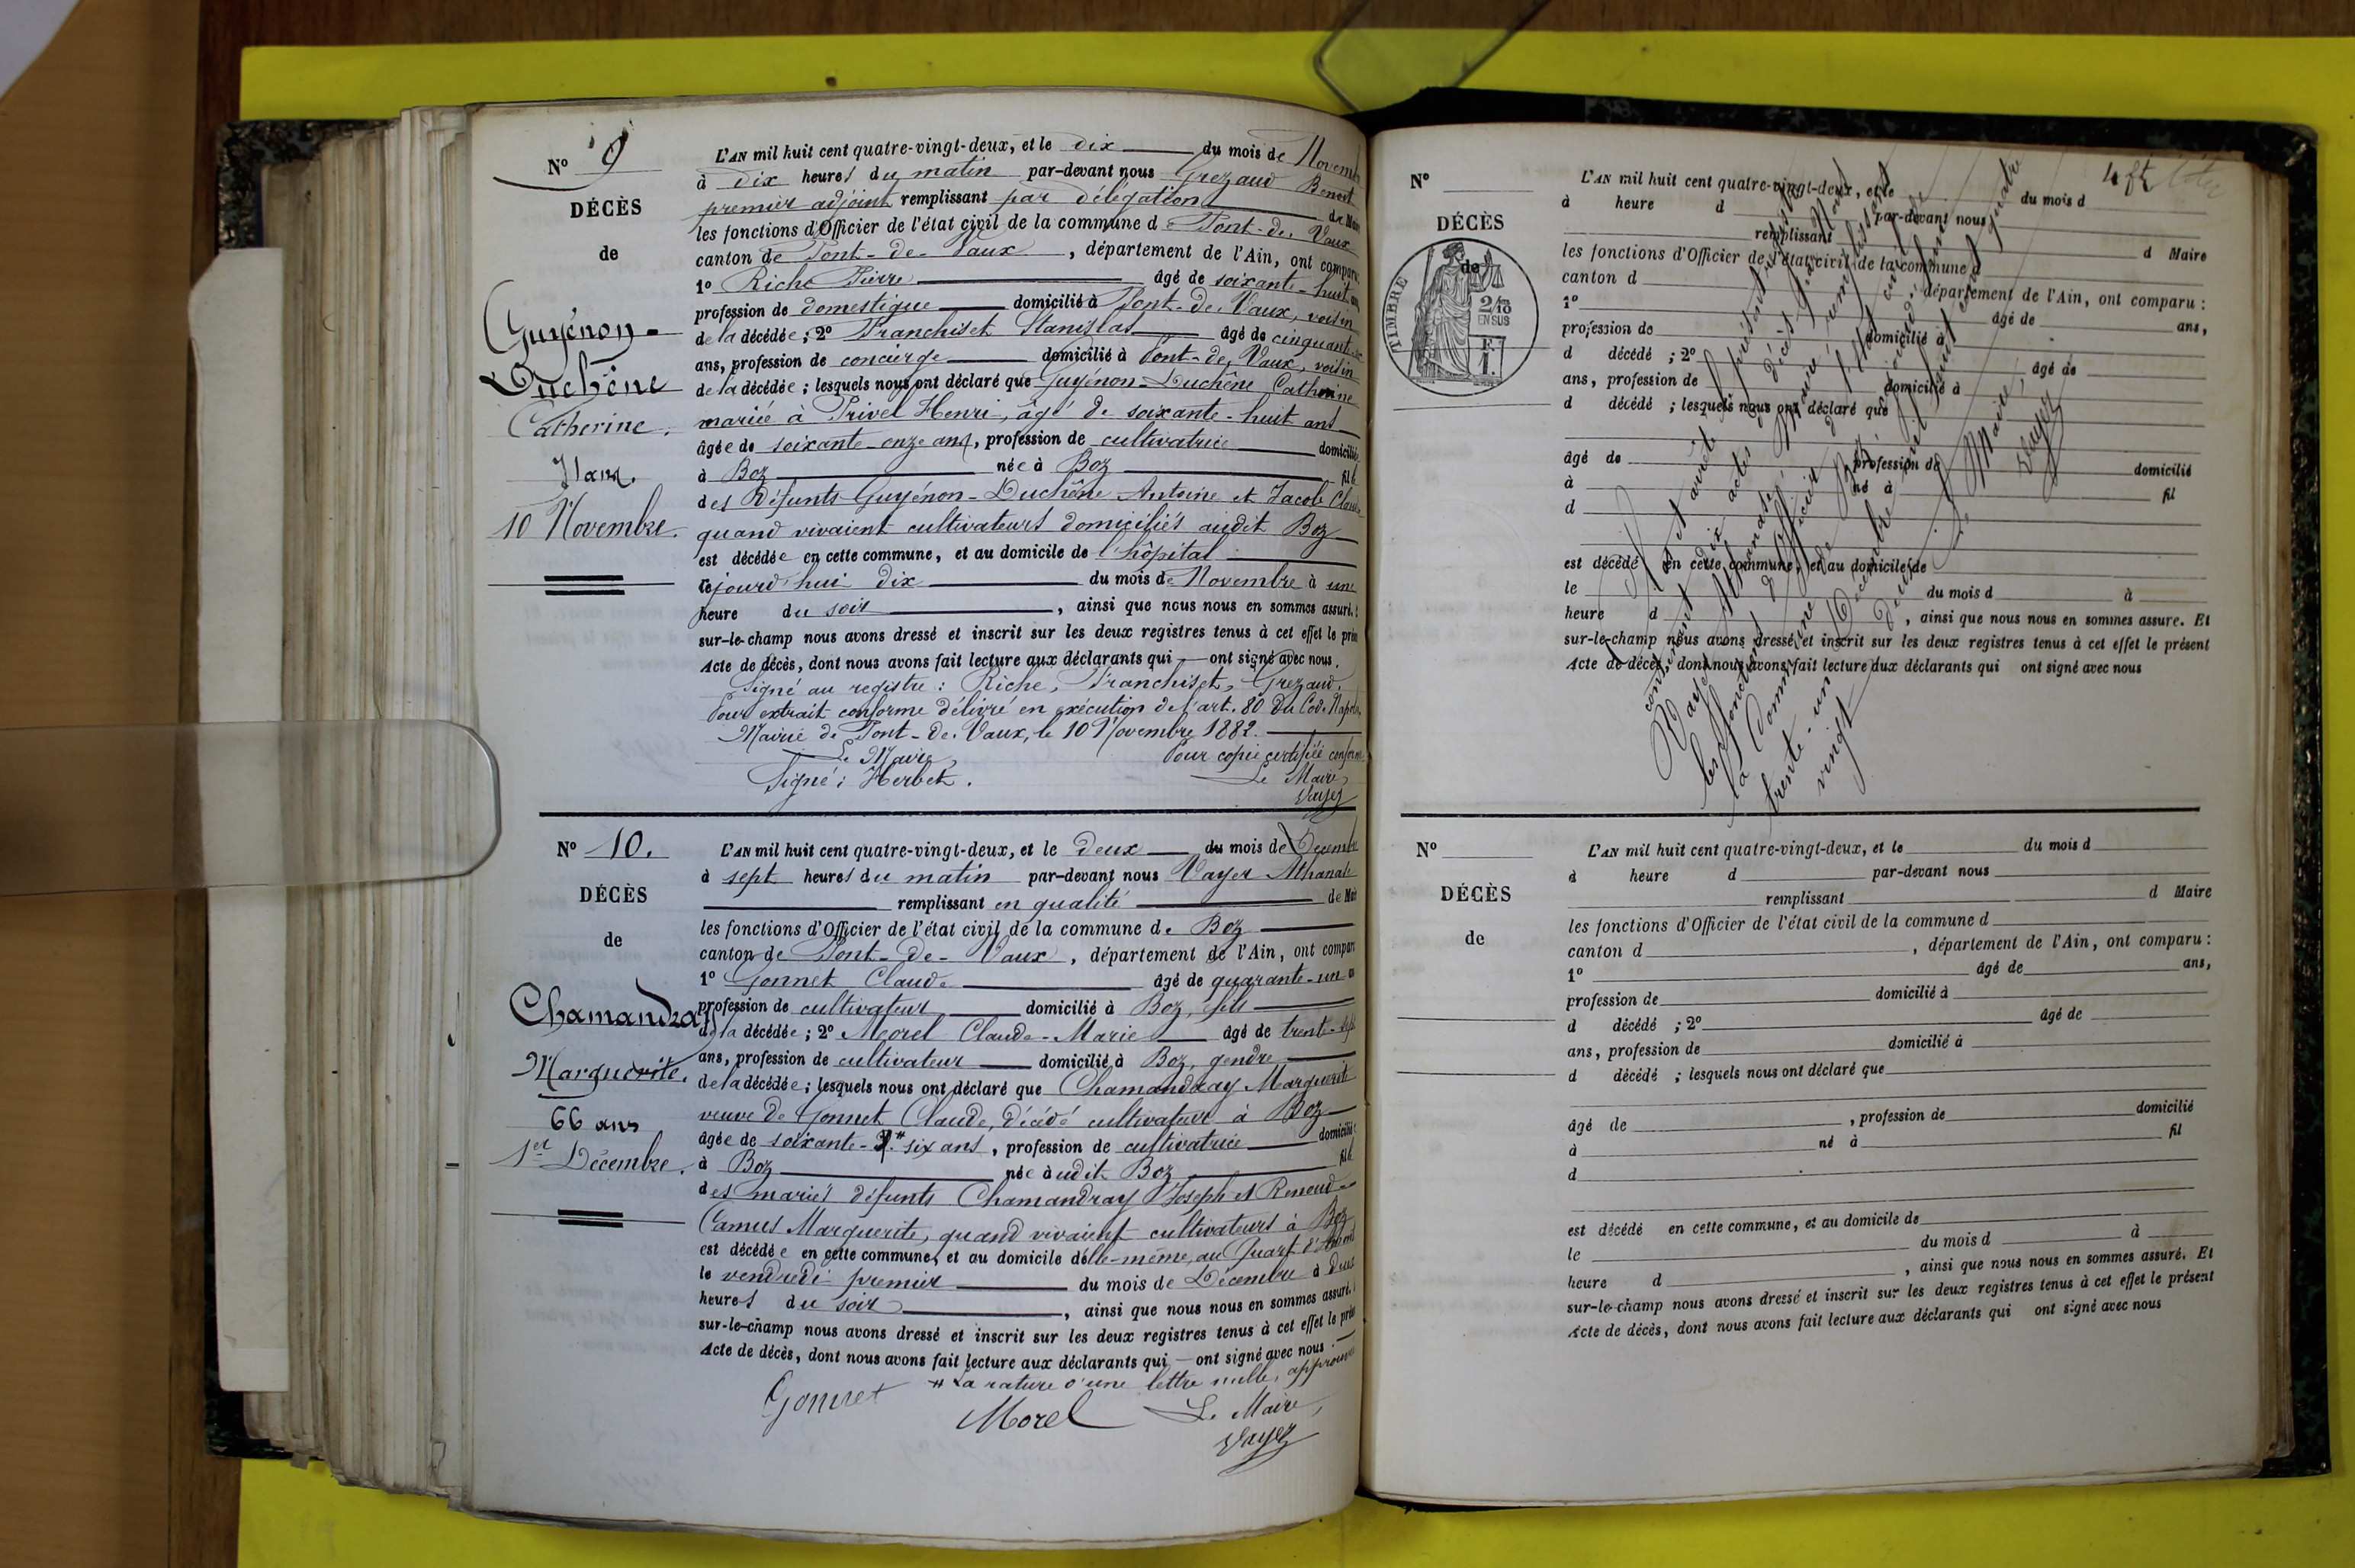 N° 9
DÉCÈS
de
Guyénon-
Duchêne
Catherine.
71 ans.
10 Novembre.
L'AN mil huit cent quatre-vingt-deux, et le dix du mois de Novem
à dix heures du matin par-devant nous Grezaud Benoit
premier adjoint remplissant par délégation du Mai
les fonctions d'Officier de l'état civil de la commune de Pont-de-Vaux
canton de Pont-de-Vaux, département de l'Ain, ont compar
1° Riche Pierre âgé de soixante-huit an
profession de domestique domicilié à Pont-de-Vaux, voisin
de la décédée; 2° Franchiset Stanislas âgé de cinquante
ans, profession de concierge domicilié à Pont-de-Vaux, voisin
de la décédée; lesquels nous ont déclaré que Guyénon-Duchêne Catherine
mariée à Privel Henri, âgé de soixante-huit ans
âgée de soixante-onze ans, profession de cultivatrice domicilié
à Boz née à Boz fille
des Défunts Guyénon-Duchêne Antoine et Jacob Claud
quand vivaient cultivateurs domiciliés audit Boz
est décédée en cette commune, et au domicile de l'hôpital
cejourd'hui dix du mois de Novembre à une
heure du soir, ainsi que nous nous en sommes assuré.
sur-le-champ nous avons dressé et inscrit sur les deux registres tenus à cet effet le prés
Acte de décès, dont nous avons fait lecture aux déclarants qui ont signé avec nous.
Signé au registre: Riche, Franchiset, Grezaud.
Pour extrait conforme délivré en exécution de l'art. 80 du Code Napol.
Mairie de Pont-de-Vaux, le 10 Novembre 1882.
Le Maire,
Signé: Herbet.
Pour copie certifiée conforme
Le Maire,
Vayer
N° 10.
DÉCÈS
de
Chamandray
Marguerite.
66 ans
1er Décembre.
L'AN mil huit cent quatre-vingt-deux, et le deux du mois de Décembre
à sept heures du matin par-devant nous Vayer Athanase
remplissant en qualité de Mai
les fonctions d'Officier de l'état civil de la commune de Boz
canton de Pont-de-Vaux, département de l'Ain, ont compar
1° Gonnet Claude âgé de quarante-un a
profession de cultivateur domicilié à Boz, fils
de la décédée; 2° Morel Claude-Marie âgé de trente-sept
ans, profession de cultivateur domicilié à Boz, gendre
de la décédée; lesquels nous ont déclaré que Chamandray Marguerite
veuve de Gonnet Claude, décédé cultivateur à Boz
âgée de soixante-* six ans, profession de cultivatrice domicilié
à Boz née audit Boz fille
des mariés défunts Chamandray Joseph et Renoud-
Camus Marguerite, quand vivaient cultivateurs à Boz
est décédée en cette commune, et au domicile d'elle-même, au Quart d'
le vendredi premier du mois de Décembre à deux
heures du soir, ainsi que nous nous en sommes assuré.
sur-le-champ nous avons dressé et inscrit sur les deux registres tenus à cet effet le prés
Acte de décès, dont nous avons fait lecture aux déclarants qui ont signé avec nous
* La rature d'une lettre nulle, approuvé
Gonnet
Morel
Le Maire,
Vayer
N°
DÉCÈS
de
TIMBRE
2/10
EN SUS
L'AN mil huit cent quatre-vingt-deux, et le du mois d
à heure d par-devant nous
remplissant d Maire
les fonctions d'Officier de l'état civil de la commune d
canton d, département de l'Ain, ont comparu :
1° âgé de ans,
profession de domicilié à
d décédé ; 2° âgé de
ans, profession de domicilié à
d décédé ; lesquels nous ont déclaré que
âgé de profession de domicilié
à né à fil
d
est décédé en cette commune, et au domicile de
le du mois d à
heure d, ainsi que nous nous en sommes assuré. Et
sur-le-champ nous avons dressé et inscrit sur les deux registres tenus à cet effet le présent
Acte de décès, dont nous avons fait lecture aux déclarants qui ont signé avec nous
Clos et arrêté le présent registre
contenant dix actes de décès par Nous
Vayer Athanase, Maire, remplissant
les fonctions d'Officier de l'état civil de
la commune de Boz,
trente-un Décembre mil huit cent quatre
vingt deux.
Le Maire,
Vayer
N°
DÉCÈS
de
L'AN mil huit cent quatre-vingt-deux, et le du mois d
à heure d par-devant nous
remplissant d Maire
les fonctions d'Officier de l'état civil de la commune d
canton d, département de l'Ain, ont comparu :
1° âgé de ans,
profession de domicilié à
d décédé ; 2° âgé de
ans, profession de domicilié à
d décédé ; lesquels nous ont déclaré que
âgé de, profession de domicilié
à né à fil
d
est décédé en cette commune, et au domicile de
le du mois d à
heure d, ainsi que nous nous en sommes assuré. Et
sur-le-champ nous avons dressé et inscrit sur les deux registres tenus à cet effet le présent
Acte de décès, dont nous avons fait lecture aux déclarants qui ont signé avec nous